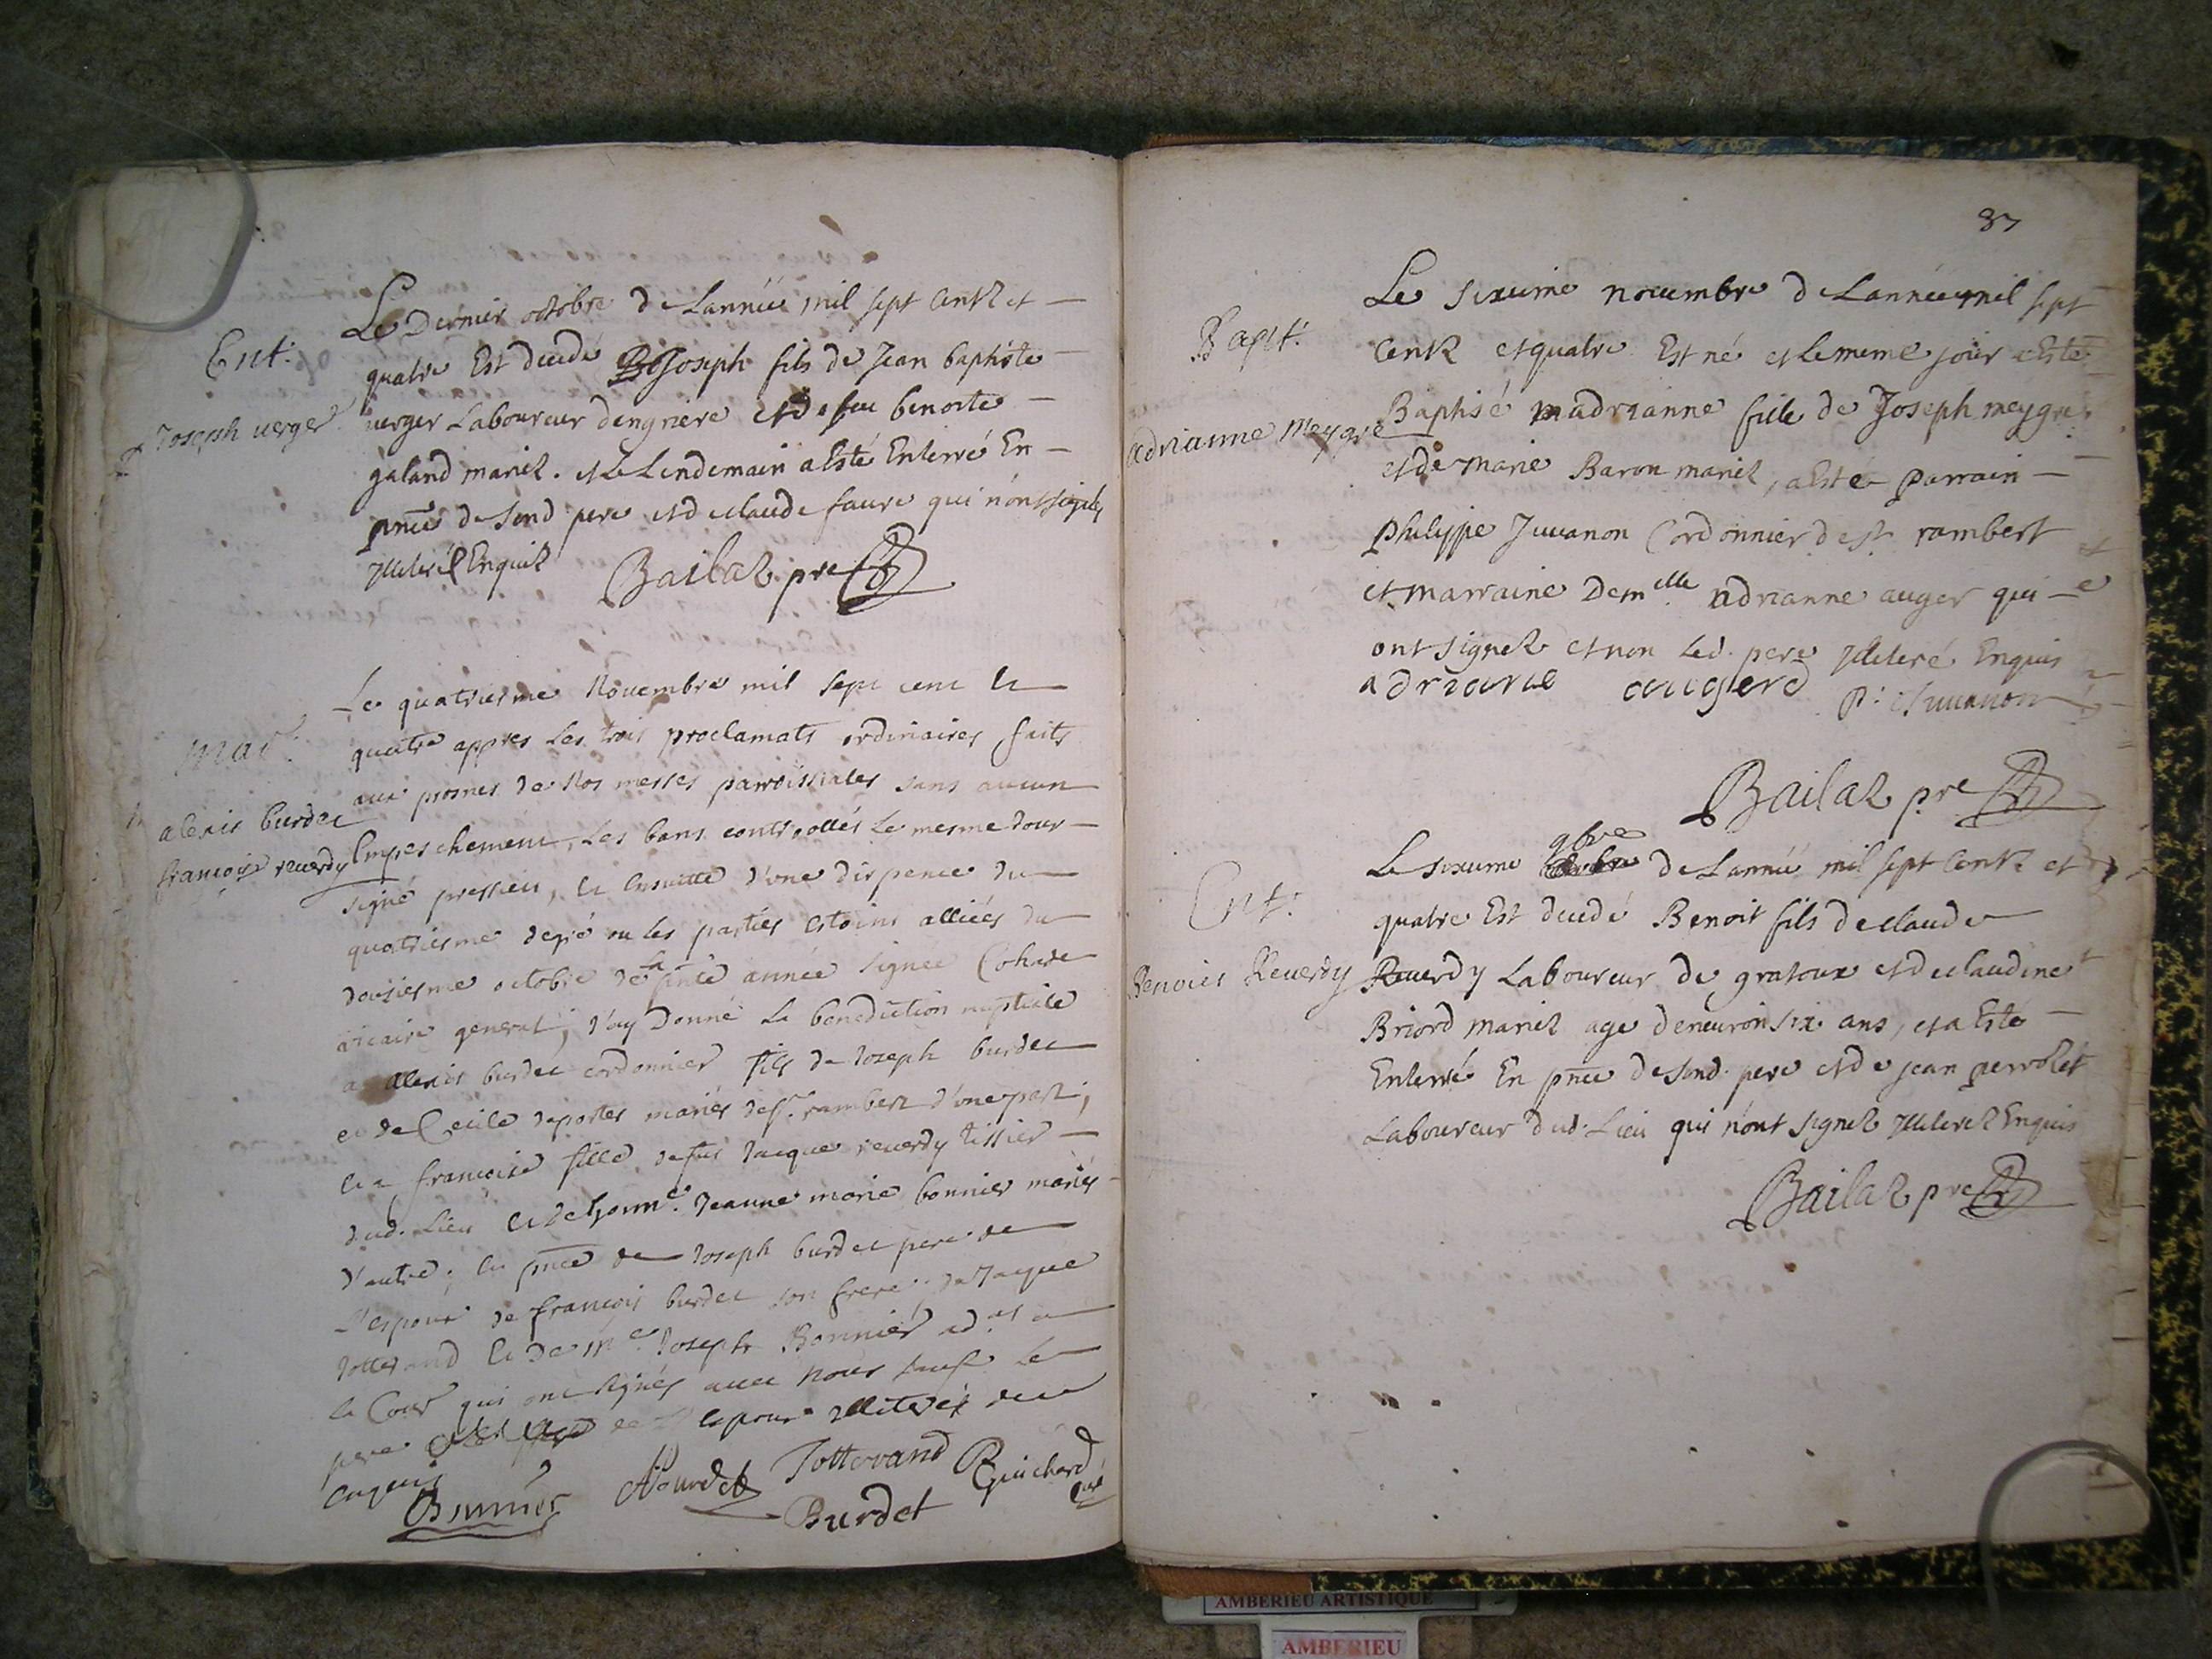 Ent.
Joseph verger
Le Dernier octobre de Lannéé mil sept Centz et
quatre Est decedé Joseph fils de Jean baptiste
verger Laboureur dengriere et de feu benoite
galand mariez. et Le Lendemain a Esté Enterré En
pnce de sond pere et de claude faure qui nont signés
Illiteréz Enquiz
Bailaz pre
mar.
alexis burdet
francoise reverdy
Le quatriesme Novembre mil sept cent et
quatre appres les trois proclamats ordinaires faits
aux prosnes de Nos messes parroissiales sans aucun
Empeschement, Les bans controollés Le mesme Jour
signé pressieu, et ensuitte d'une dispence du
quatriesme degré ou les parties estoint alliées du
dousiesme octobre de la pnte année signée Cohade
vicaire general, J'ay Donné La benediction nuptiale
a alexis burdet cordonnier fils de Joseph burdet
et de Cecile deportes mariés de st. rambert d'une part;
et a francoise fille de fus Jacque reverdy tissier
dud. Lieu et de honne. Jeanne marie bonnier mariés
d'autre. En pnce de Joseph burdet pere de
L'espoux de françois burdet son frere de Jacque
Jotterand et de me. Joseph Bonnier ad.at a
la Cour qui ont signés avec nous sauf Le
pere de L'espoux illiteréz de ce
enquis
Bonnier ABurdet Jotterand Guichard curé
Burdet
37
Bapt.
adrianne meygre
Le sixieme novembre de Lannéé mil sept
Centz et quatre Est né et Le meme jour a Esté
Baptisé adrianne fille de Joseph meygre
et de marie Baron mariez, a Esté parrain
philippe Juvanon Cordonnier de st rambert
et marraine Dem.elle adrianne auger qui
ont signez et non Led. pere Illiteré Enquis
adriane augerd P. Juvanon
Bailaz pre
Ent.
Benoist Reverdy
Le sixieme 9bre de Lannéé mil sept Centz et
quatre Est decedé Benoit fils de claude
Reverdy Laboureur de gratoux et de claudine
Briord mariez age denviron six ans, et a Esté
Enterré En pnce de sond. pere et de jean perrolet
Laboureur dud. Lieu qui n'ont signez Illiterez Enquis
Bailaz pre
AMBERIEU ARTISTIQUE
AMBERIEU